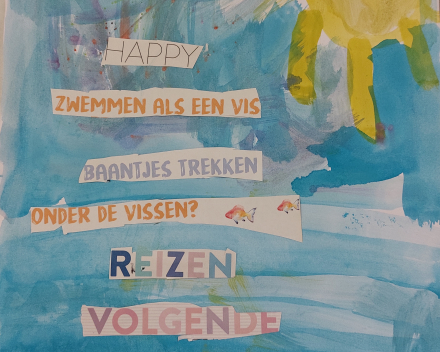 HAPPY
ZWEMMEN ALS EEN VIS
BAANTJES TREKKEN
ONDER DE VISSEN?
REIZEN
VOLGENDE